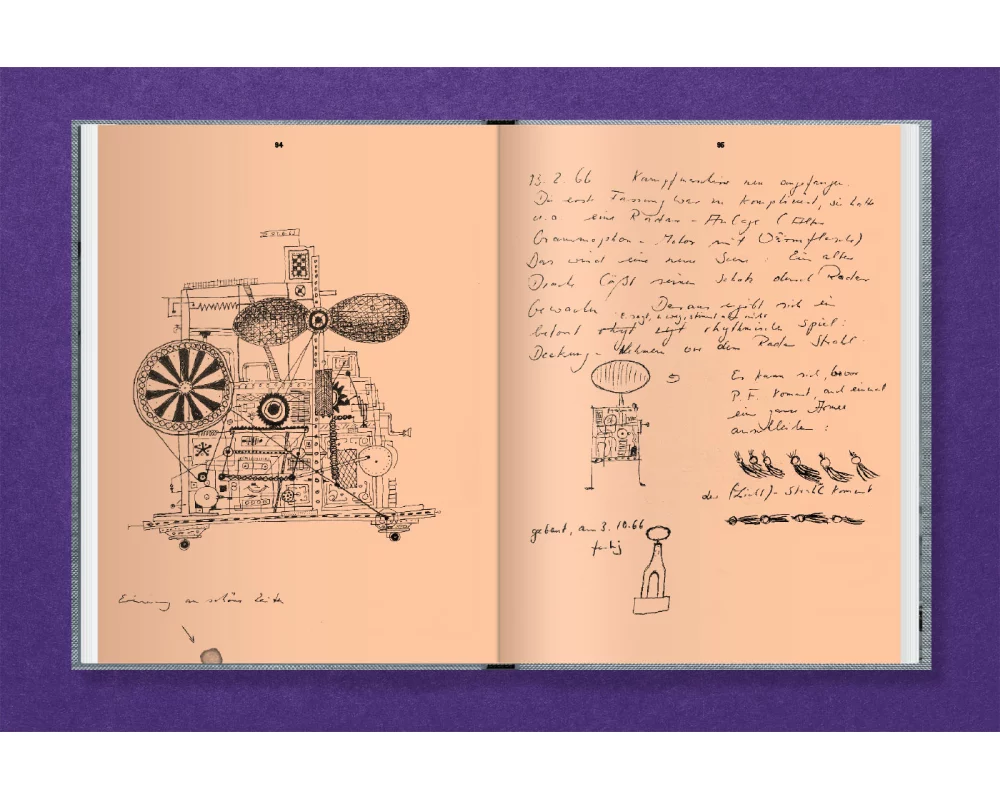 94
Erinnerung an schöne Zeiten
95
13.2.66 Kampfmaschine neu angefangen.
Die erste Fassung war zu kompliziert, sie hatte
u.a. eine Radar-Anlage (Altes
Grammophon-Motor mit Wärmflasche)
Das wird eine neue Szene: Ein alter
Drache läßt seinen Schatz durch Radar
bewachen. Daraus ergibt sich ein
betont rhythmisches Spiel:
Deckung-Nehmen vor dem Radar Strahl.
Es kann sich, bevor
P.F. kommt, auch einmal
eine ganze Armee
anschleichen:
der (Licht)-Strahl kommt
gebaut, am 3.10.66
fertig